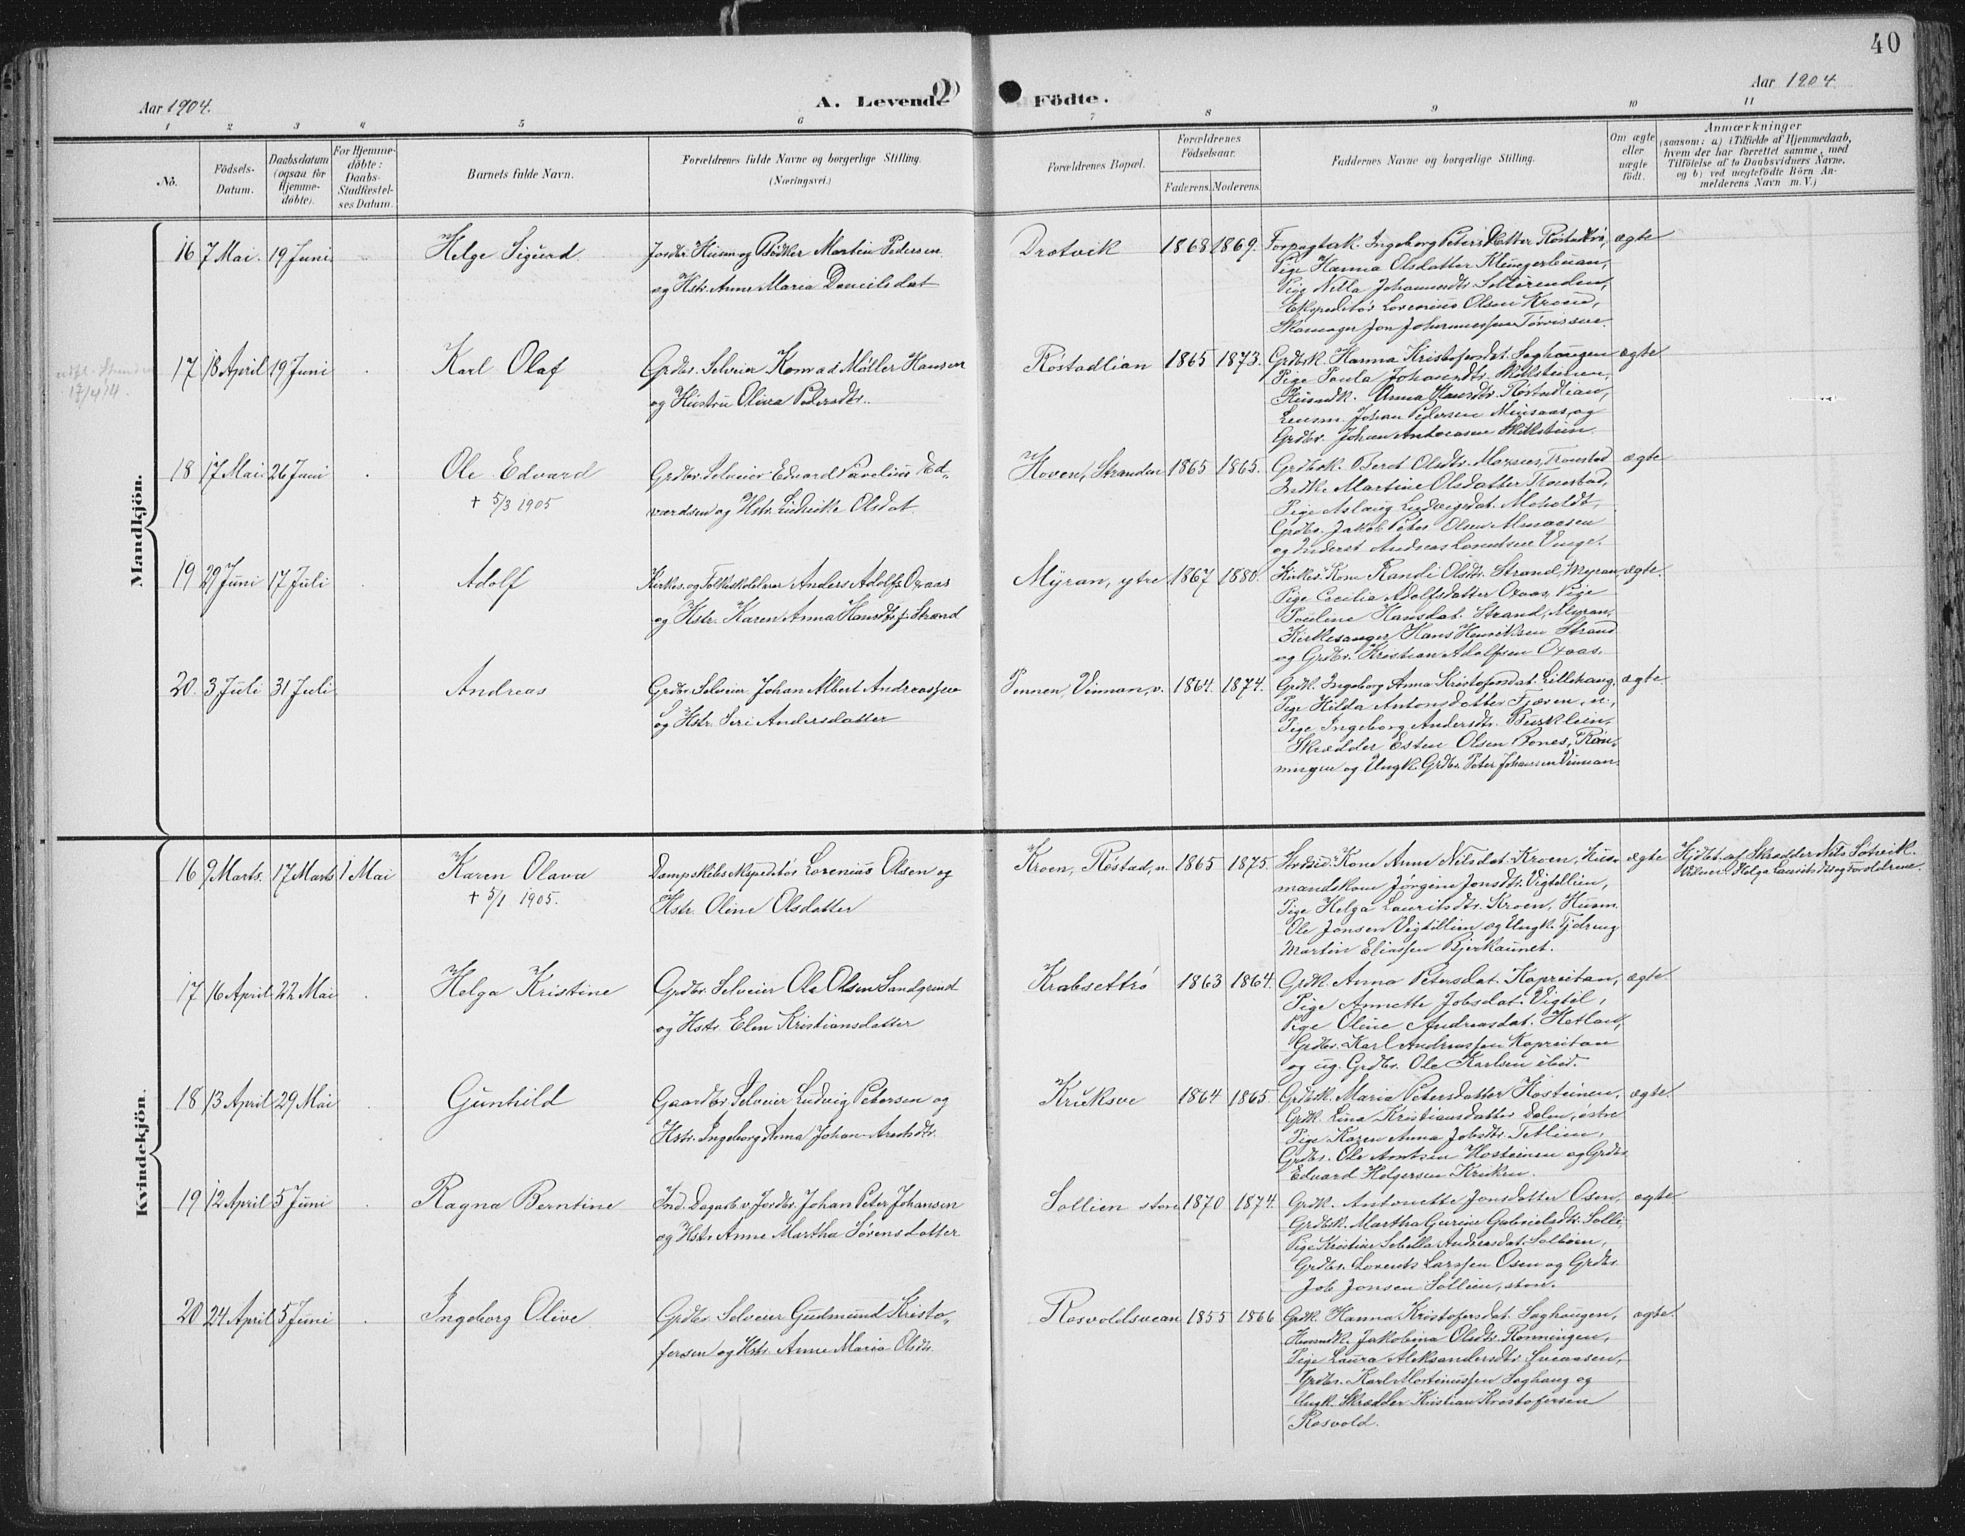 40
Aar 1904.
A. Levende Födte.
Aar 1904
1 2 3 4 5 6 7 8 9 10 11
No.
Födsels-Datum.
Daabsdatum (ogsaa for Hjemme-döbte).
For Hjemme-döbte: Daabs-Stadfæstel-ses Datum.
Barnets fulde Navn.
Forældrenes fulde Navne og borgerlige Stilling.
(Næringsvei.)
Forældrenes Bopæl.
Forældrenes Födselsaar.
Faderens. Moderens.
Faddernes Navne og borgerlige Stilling.
Om ægte eller uægte födt.
Anmærkninger
(saasom: a) i Tilfælde af Hjemmedaab, hvem der har forrettet samme, med Tilföielse af to Daabsvidners Navne, og b) ved uægtefödte Börn Anmelderens Navn m. V.)
Mandkjön.
16 7 Mai. 19 Juni Helge Sigurd Jordbr. Husm og Bødker Martin Pedersen
og Hstr. Anne Maria Danielsdat
Drotvik 1868 1869. Ingeborg Petersdatter Røstadlia, ægte
Pige Hanna Olsdatter Klungerbuan,
Pige Nella
Ekspeditør Lorenius Olsen Kroen,
Skomager Jon Johannessen
17 18 April 19 Juni Karl Olaf Grdbr. Selveier Konrad Møller Hansen
og Hustru Oliva Pedersdtr.
Røstadlian 1865 1873. Grdbrk. Hanna Kristofersdat. Saghaugen ægte
Pige Paula
Husmdk. Anna Hansdtr. Røstadlian,
Lensm. Johan Pedersen Minsaas, og
Grdbr. Johan Antonsen
17/4 14.
18 17 Mai 26 Juni Ole Edvard Grdbr. Selveier Edvard Pavelius Ed-
+ 5/3 1905 vardsen og Hstr. Ludvikke Olsdat.
Hoven, Stranden 1865 1865. Grdbrk. Beret Olsdtr. ægte
Indk. Martine Olsdatter
Pige Aslaug Ludvigsdat. Moholdt,
Grdbr. Jakob Peter Olsen
og Inderst Andreas
19 29 Juni 17 Juli Adolf Kirkes. og Folkeskolelærer Anders Adolfs. Oxaas
og Hstr. Karen Anna Hansdtr. f. Strand
Myran, ytre 1867 1880. Kirkes. Kone Randi Olsdtr. Strand, Myran, ægte.
Pige Cecilia Adolfsdatter Oxaas, Pige
Pauline Hansdat. Strand, Myran,
Kirkesanger Hans Henriksen Strand
og Grdbr. Kristian Adolfsen Oxaas.
20. 3 Juli 31 Juli Andreas Grdbr. Selveier Johan Albert Andreassen
og Hstr. Seri Andersdatter
Vinnan, v. 1864. 1874. Grdk. Ingeborg Anna Kristofersdat. Lillehaug, ægte.
Pige Hilda Antonsdatter
Pige Ingeborg Andersdtr.
Skrædder Esten Olsen Bones, Røn-
ningen og Ungk. Grdbr. Peter Johansen Vinnan
Kvindekjön.
16 9 Marts. 17 Marts 1 Mai Karen Olava Dampskibsekspeditør Lorenius Olsen og
+ 5/1 1905. Hstr. Oline Olsdatter
Kroen, Røstad, v. 1865 1875. Kone Anne Nilsdat. Kroen, Hus- ægte Hjdbt. af Skrædder Nils Søtvik.
mandskone Jørgine Jonsdtr. Vigtillien, Vidner: Helga Lauritsdtr og Forældrene.
Pige Helga Lauritsdtr. Kroen, Husm.
Ole Jonsen Vigtillien og Ungk. Tjdreng
Martin Eliassen Bjerkaunet.
17 16 April 22 Mai Helga Kristine Grdbr. Selveier Ole Olsen Sandgrind
og Hstr. Elen Kristiansdatter
Krabsettrø 1863 1864. Grdk. Anna Petersdat. Kapreitan, ægte.
Pige Annette Jobsdat. Vigtil,
Pige Oline Andreasdat. Hetlan,
Grdbr. Karl Andreassen Kapreitan
og ug. Grdbr. Ole Karlsen ibid.
18 13 April 29 Mai Gunhild Gaardbr. Selveier Ludvig Petersen og
Hstr. Ingeborg Anna Johan-Arntsdtr.
Kruksve 1864 1865 Grdbk. Maria Petersdatter Hosteinen, ægte.
Grdk. Lina Kristiansdatter Dalen, østre
Pige Karen Anna Jobsdtr. Tetlien,
Grdbr. Ole Arntsen Hosteinen og Grdbr.
Edvard Holgersen Kruken.
19 12 April 5 Juni Ragna Berntine Ind. Dagarb. v. Jordbr. Johan Peter Johansen
og Hstr. Anne Martha Sørensdatter
Sollien store 1870 1874. Grdk. Antonette Jonsdatter Osen, ægte
Grdbk. Martha Gurine Gabrielsdtr. Solli,
Pige Kristine Sebilla Andreasdat.
Grdbr. Lorents Larssen Osen og Grdbr.
Job Jonsen Sollien, store.
20 24 April 5 Juni Ingeborg Olive Grdbr. Selveier Gudmund Kristo-
fersen og Hstr. Anne Maria Olsdtr.
Rosvoldsvean 1855 1866 Grdk. Hanna Kristofersdat. Saghaugen, ægte.
Husmdk. Jakobina Olsdtr. Rønningen,
Pige Laura Aleksandersdtr. Sveaasen,
Grdbr. Karl Mortinussen Saghaug og
Ungk. Skrædder Kristian Kristofersen
Rosvold.